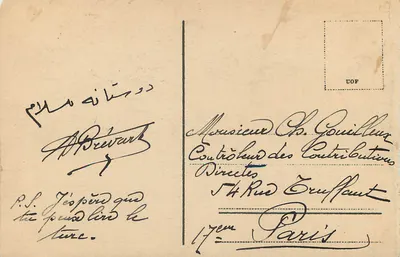 دوستانه سلام
A Brévart
P.S. J'espère que
tu peux lire le
turc.
COF
Monsieur Ch. Gouilleux
Contrôleur des Contributions
Directes
54 Rue Truffaut
17em Paris